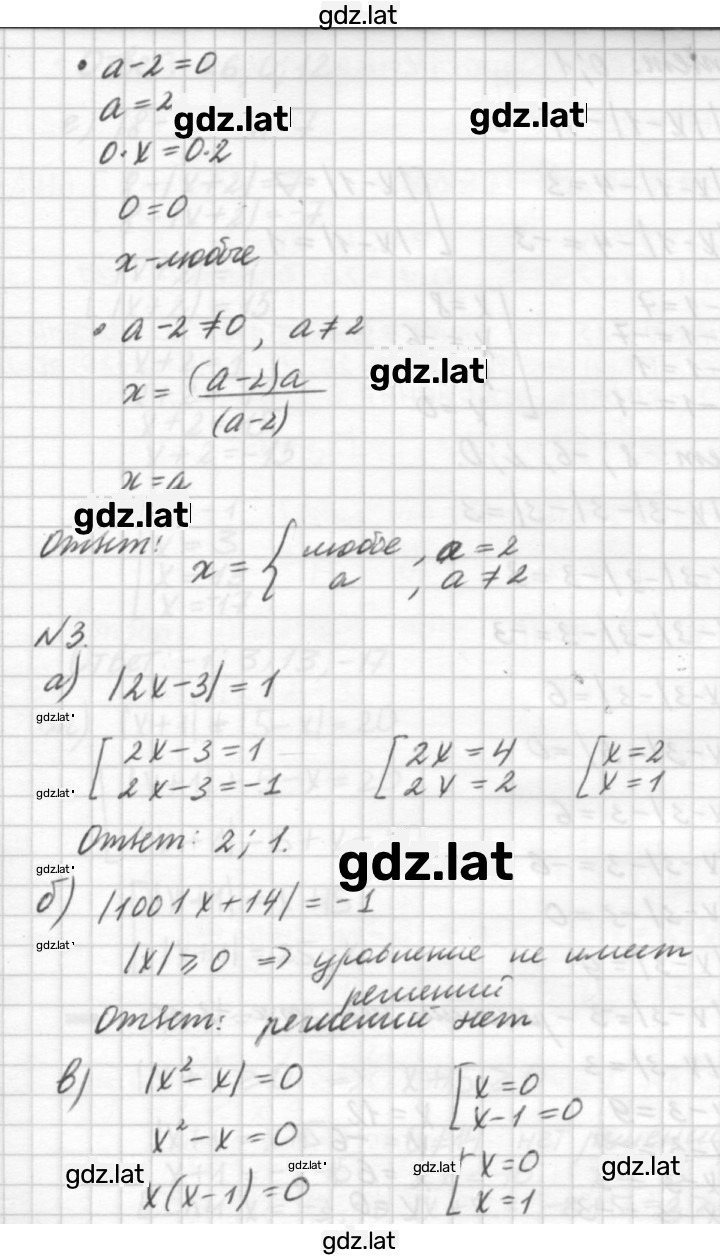 gdz.lat
• a-2=0
a=2
gdz.lat gdz.lat
0·x=0·2
0=0
x-любое
• a-2≠0, a≠2
gdz.lat
x = (a-2)a
(a-2)
x=a
gdz.lat
Ответ:
x = { любое, a=2
a, a≠2
№3.
а) |2x-3|=1
gdz.lat
[ 2x-3=1 [ 2x=4 [ x=2
gdz.lat 2x-3=-1 2x=2 x=1
Ответ: 2; 1.
gdz.lat gdz.lat
б) |1001x+14|=-1
gdz.lat
|x|≥0 => уравнение не имеет
решений
Ответ: решений нет
в) |x²-x|=0 [ x=0
x-1=0
x²-x=0
gdz.lat gdz.lat gdz.lat [ x=0 gdz.lat
x(x-1)=0 x=1
gdz.lat